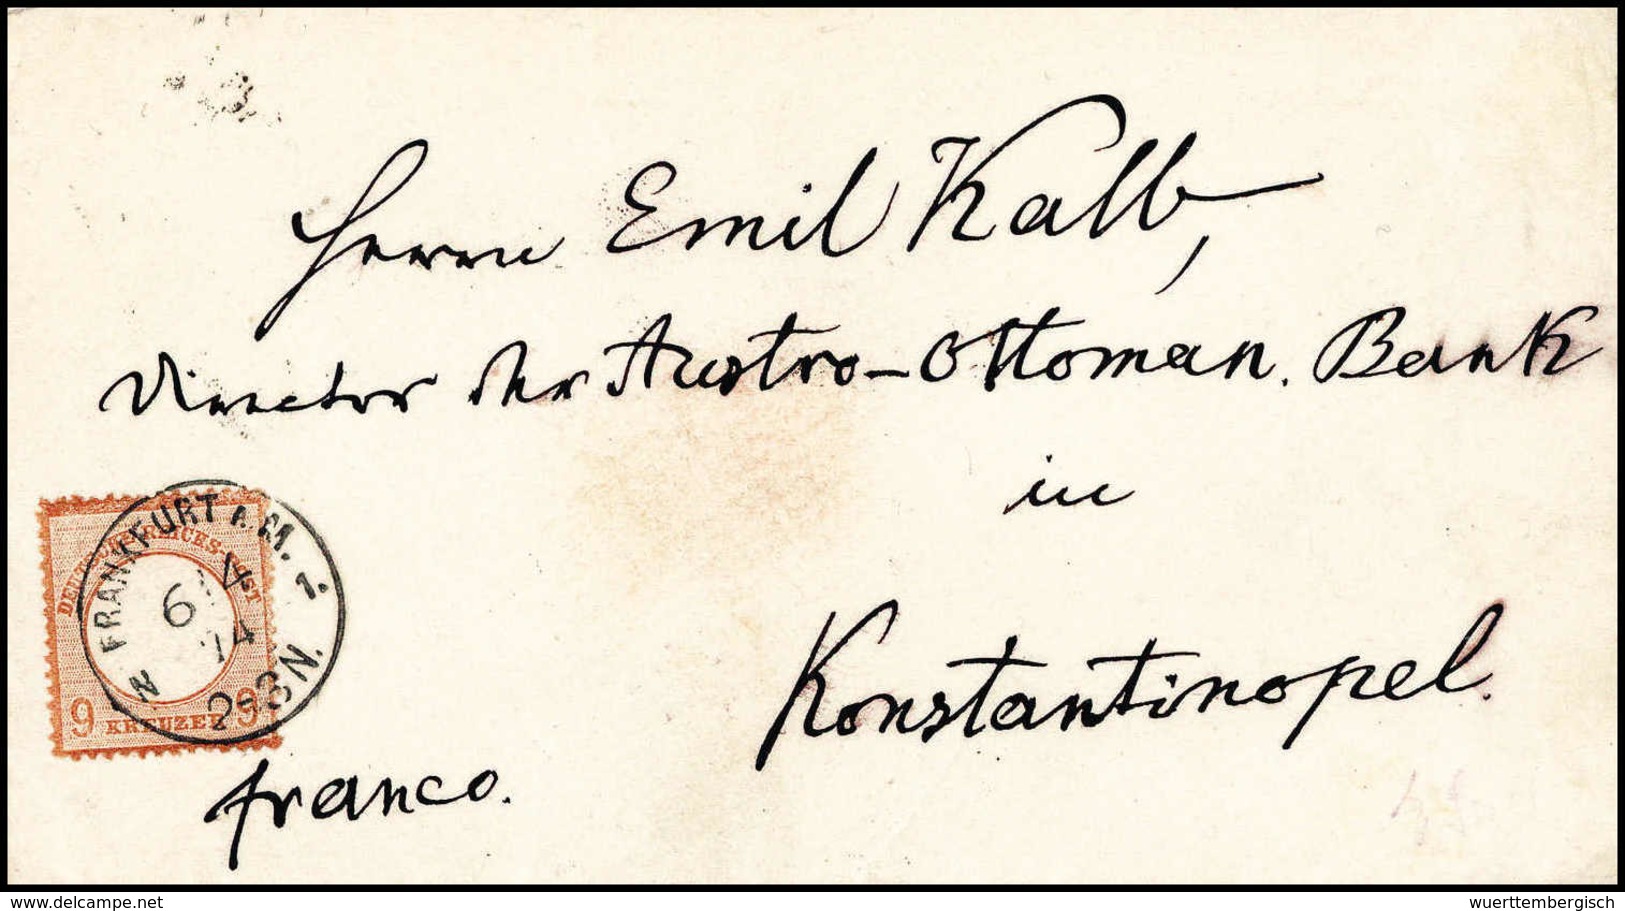 Herrn Emil Kalb,
Director der Austro-Ottoman. Bank
in
Konstantinopel.
franco.
DEUTSCHE REICHS-POST
9 KREUZER 9
FRANKFURT A. M. 1.
6 4
74
2-3 N.
N
www.delcampe.net
wuerttembergisch